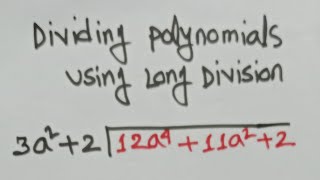 Dividing polynomials
using Long Division
3a²+2 ⟌12a⁴+11a²+2